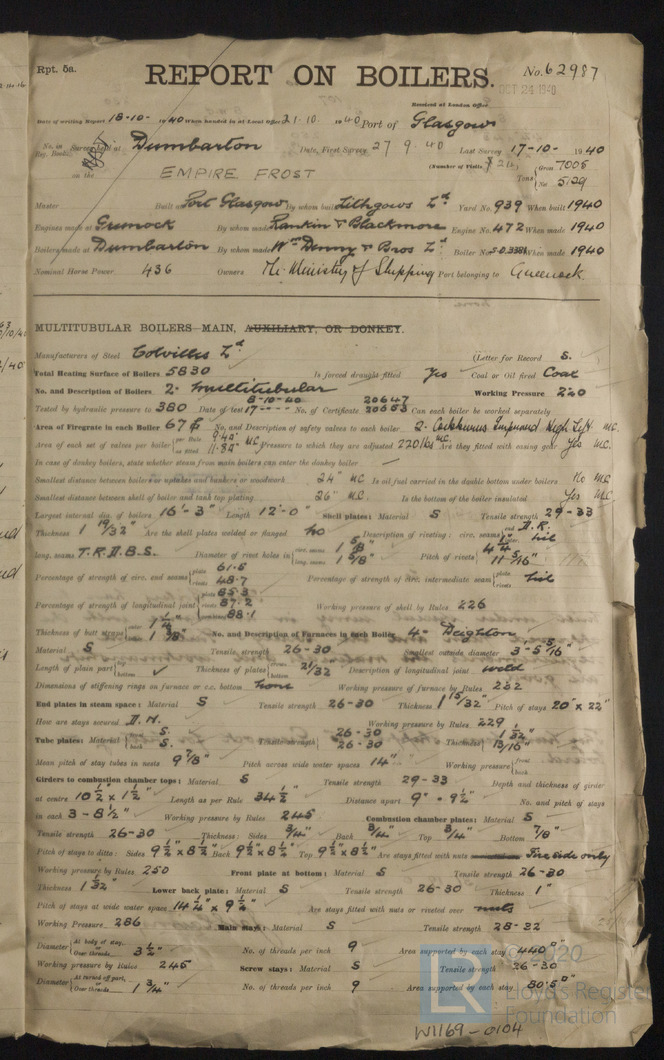 Rpt. 5a.
REPORT ON BOILERS.
No. 62987
Received at London Office
OCT 24 1940
Date of writing Report 18-10- 1940 When handed in at Local Office 21.10. 1940 Port of Glasgow
No. in Reg. Book. Survey held at Dumbarton Date, First Survey 27 9 40 Last Survey 17-10- 1940
on the EMPIRE FROST (Number of Visits) Tons Gross 7005 Net 5129
Master Built at Port Glasgow By whom built Lithgows Ld Yard No. 939 When built 1940
Engines made at Greenock By whom made Rankin & Blackmore Engine No. 472 When made 1940
Boilers made at Dumbarton By whom made Wm Denny & Bros Ld Boiler No. When made 1940
Nominal Horse Power 436 Owners The Ministry of Shipping Port belonging to Greenock.
MULTITUBULAR BOILERS—MAIN, AUXILIARY, OR DONKEY.
Manufacturers of Steel Colvilles Ld (Letter for Record S.
Total Heating Surface of Boilers 5830 Is forced draught fitted Yes Coal or Oil fired Coal
No. and Description of Boilers 2- Multitubular Working Pressure 220
Tested by hydraulic pressure to 380 Date of test 8-10-40 17 No. of Certificate 20647 20653 Can each boiler be worked separately
Area of Firegrate in each Boiler 67 No. and Description of safety valves to each boiler 2- Cockburns Improved High Lift MC.
Area of each set of valves per boiler per Rule as fitted MC Pressure to which they are adjusted 220 lbs MC. Are they fitted with easing gear Yes MC.
In case of donkey boilers, state whether steam from main boilers can enter the donkey boiler
Smallest distance between boilers or uptakes and bunkers or woodwork 24" MC Is oil fuel carried in the double bottom under boilers No MC
Smallest distance between shell of boiler and tank top plating 26" MC. Is the bottom of the boiler insulated Yes MC
Largest internal dia. of boilers 16'-3" Length 12'-0" Shell plates: Material S Tensile strength 29-33
Thickness 1 19/32" Are the shell plates welded or flanged No Description of riveting: circ. seams end D.R. inter. Nil
long. seams T.R.D.B.S. Diameter of rivet holes in circ. seams long. seams 1 5/8" Pitch of rivets 4 1/4" 11 5/16"
Percentage of strength of circ. end seams plate 61.5 rivets 48.7 Percentage of strength of circ. intermediate seam plate rivets Nil
Percentage of strength of longitudinal joint plate 85.3 rivets 87.2 combined 88.1 Working pressure of shell by Rules 226
Thickness of butt straps outer inner No. and Description of Furnaces in each Boiler 4- Deighton
Material S Tensile strength 26-30 Smallest outside diameter 3'-5 5/16"
Length of plain part top bottom Thickness of plates crown bottom 21/32" Description of longitudinal joint weld
Dimensions of stiffening rings on furnace or c.c. bottom None Working pressure of furnace by Rules 232
End plates in steam space: Material S Tensile strength 26-30 Thickness 1 15/32" Pitch of stays 20" x 22"
How are stays secured D.N. Working pressure by Rules 229
Tube plates: Material front S. back S. Tensile strength 26-30 26-30 Thickness 1 1/32" 13/16"
Mean pitch of stay tubes in nests 9 7/8" Pitch across wide water spaces 14" Working pressure front back
Girders to combustion chamber tops: Material S Tensile strength 29-33 Depth and thickness of girder
at centre 10 1/2" x 1 1/2" Length as per Rule 34 1/2" Distance apart 9" - 9 1/2" No. and pitch of stays
in each 3 - 8 1/2" Working pressure by Rules 245 Combustion chamber plates: Material S
Tensile strength 26-30 Thickness: Sides 3/4" Back 3/4" Top 3/4" Bottom 7/8"
Pitch of stays to ditto: Sides 9 1/2" x 8 1/2" Back 9 1/2" x 8 1/2" Top 9 1/2" x 8 1/2" Are stays fitted with nuts Fire side only
Working pressure by Rules 250 Front plate at bottom: Material S Tensile strength 26-30
Thickness 1 1/32" Lower back plate: Material S Tensile strength 26-30 Thickness 1"
Pitch of stays at wide water space 14 1/4" x 9 1/2" Are stays fitted with nuts or riveted over nuts
Working Pressure 286 Main stays: Material S Tensile strength 28-32
Diameter At body of stay, Over threads 3 1/2" No. of threads per inch 9 Area supported by each stay 440 □"
Working pressure by Rules 245 Screw stays: Material S Tensile strength 26-30
Diameter At turned off part, Over threads 1 3/4" No. of threads per inch 9 Area supported by each stay 80.5 □"
© 2020
LR
Lloyd's Register
Foundation
W1169-0104